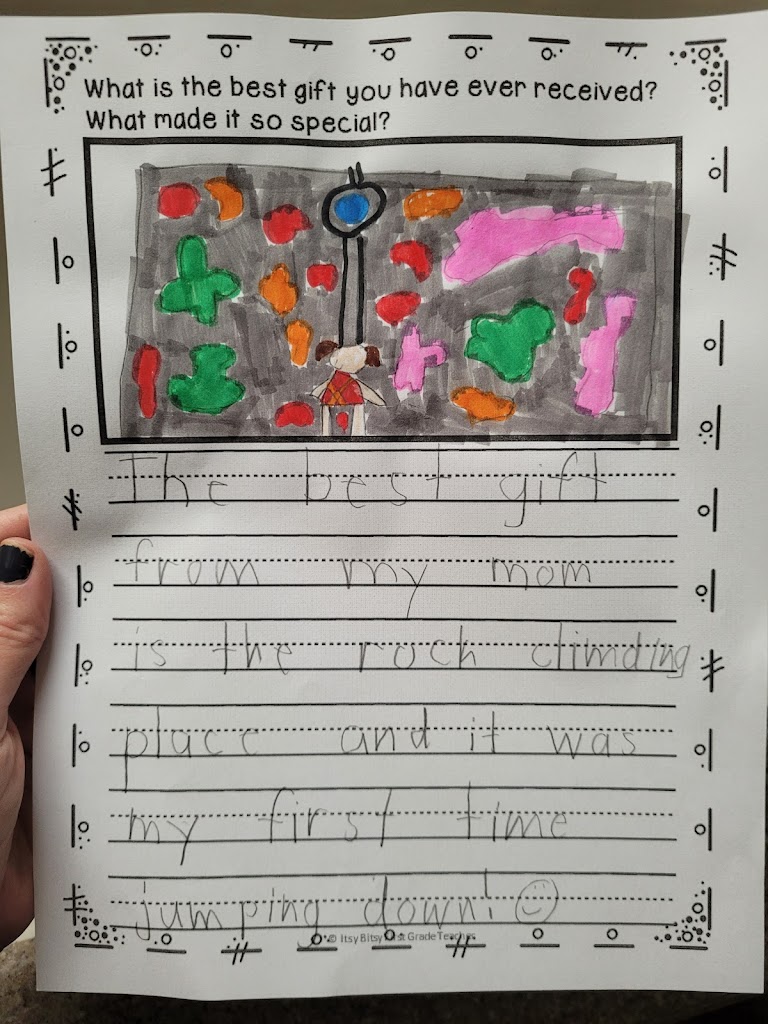 What is the best gift you have ever received?
What made it so special?
The best gift
from my mom
is the rock climding
place and it was
my first time
jumping down!
© Itsy Bitsy First Grade Teacher